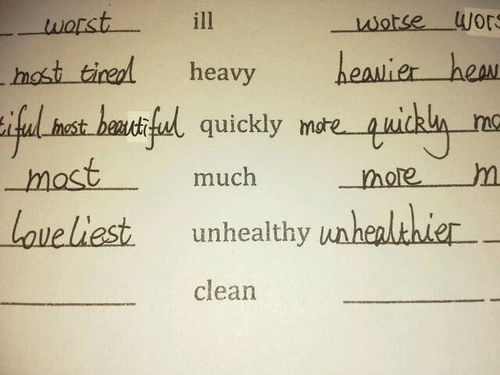 worst ill worse wors
most tired heavy heavier heav
tiful most beautiful quickly more quickly mo
most much more m
loveliest unhealthy unhealthier
clean